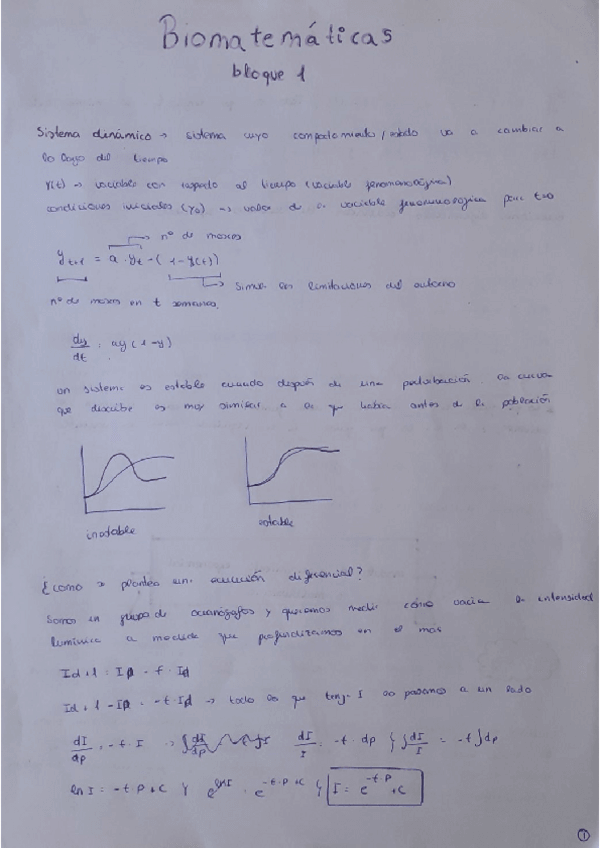 Biomatemáticas
bloque 1
Sistema dinámico → sistema cuyo comportamiento/ va a cambiar a
lo largo del tiempo
y(t) → variable con respecto al tiempo (variable fenomenológica)
condiciones iniciales (y₀) → valor de la variable fenomenológica para t=0
nº de moscas
y t+1 = a · yt · (1 - y(t))
simula las limitaciones del entorno
nº de moscas en t semanas.
dy/dt = ay (1-y)
un sistema es estable cuando después de una perturbación la curva
que describe es muy similar a la que había antes de la población
inestable
estable
¿como se plantea una ecuación diferencial?
Somos un grupo de oceanógrafos y queremos medir cómo varia la intensidad
lumínica a medida que profundizamos en el mar
Id+1 = Id - f · Id
Id+1 - Id = -f · Id → todo lo que tenga I lo pasamos a un lado
dI/dp = -f · I → ∫ dI/dp dI/I = -f · dp } ∫ dI/I = -f ∫ dp
ln I = -f · p + C } e^lnI = e^-f·p+C } I = e^-f·p + C
1